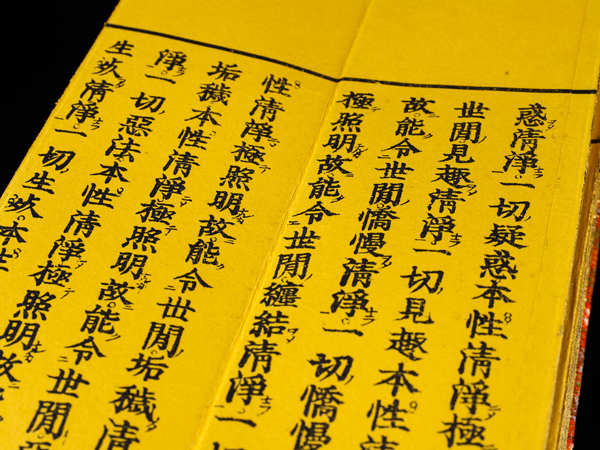 惑清淨一切疑惑本性清淨極
世閒見趣清淨一切見趣本性清
故能令世閒憍慢清淨一切憍慢
極照明故能令世閒纏結清淨一切
性清淨極照明故能令世閒垢穢清
垢穢本性清淨極照明故能令世閒惡
淨一切惡法本性清淨極照明故
生死清淨一切生死本性